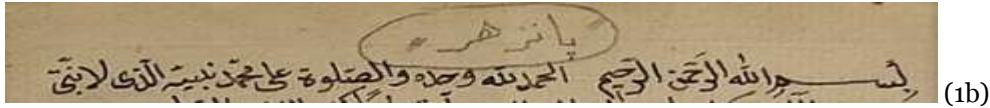 پانزهر
بسم الله الرحمن الرحيم الحمد لله وحده والصلوة على محمد نبيه الذى لا نبى
(1b)